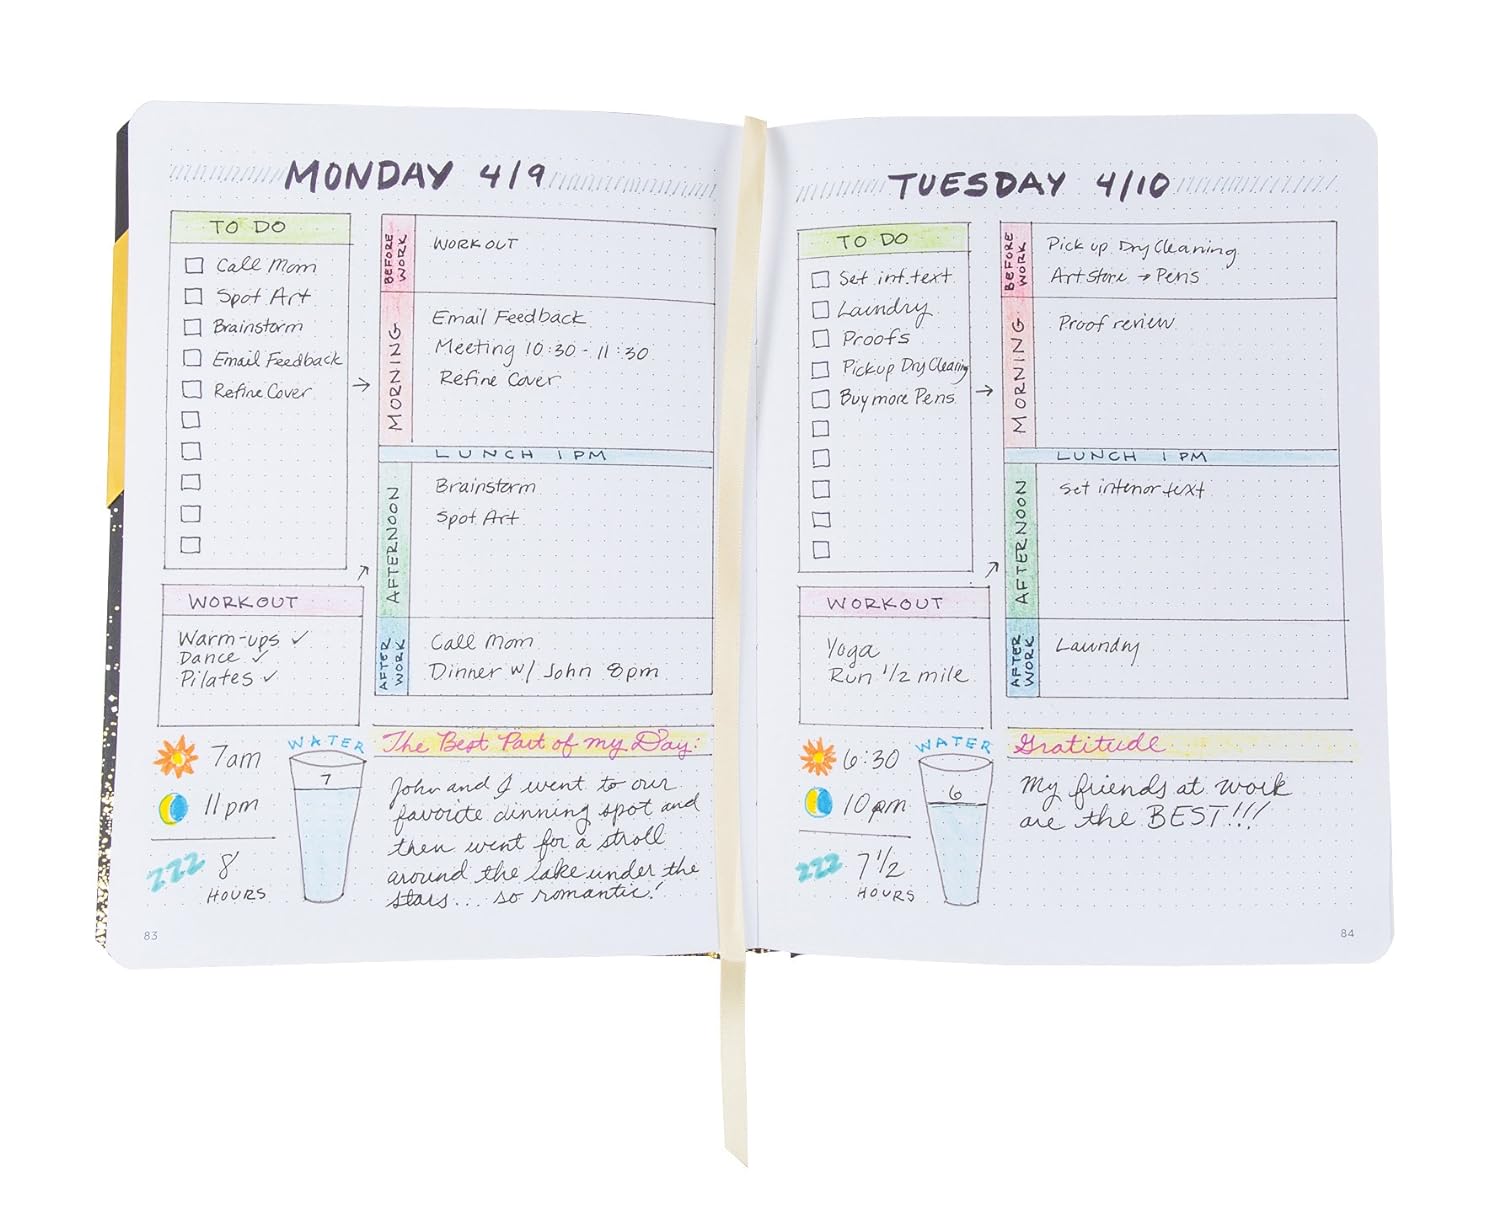 MONDAY 4/9
TO DO
Call Mom
Spot Art
Brainstorm
Email Feedback
Refine Cover
WORKOUT
Warm-ups ✓
Dance ✓
Pilates ✓
7am
11pm
ZZZ 8
HOURS
WATER
7
BEFORE WORK
WORKOUT
MORNING
Email Feedback
Meeting 10:30 - 11:30
Refine Cover
LUNCH 1 PM
AFTERNOON
Brainstorm
Spot Art
AFTER WORK
Call Mom
Dinner w/ John 8pm
The Best Part of my Day:
John and I went to our
favorite dinning spot and
then went for a stroll
around the lake under the
stars... so romantic!
83
TUESDAY 4/10
TO DO
Set int. text
Laundry
Proofs
Pick up Dry Cleaning
Buy more Pens
WORKOUT
Yoga
Run 1/2 mile
6:30
10pm
ZZZ 7 1/2
HOURS
WATER
6
BEFORE WORK
Pick up Dry Cleaning
Art Store → Pens
MORNING
Proof review
LUNCH 1 PM
AFTERNOON
Set interior text
AFTER WORK
Laundry
Gratitude
My friends at work
are the BEST!!!
84